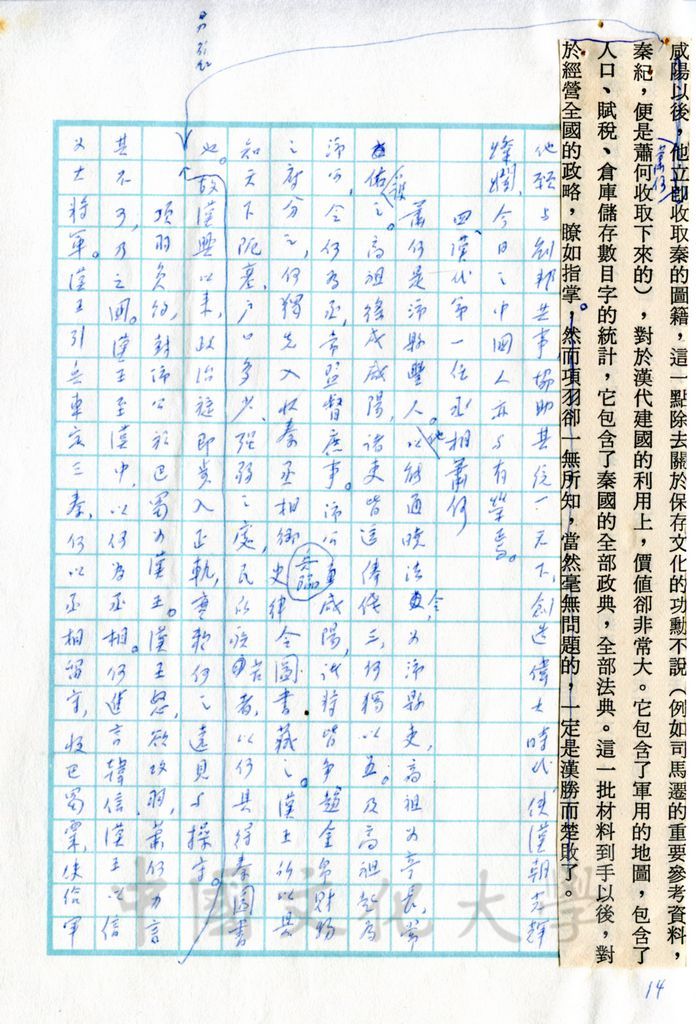 咸陽以後，他立即收取秦的圖籍，這一點除去關於保存文化的功勳不說（例如司馬遷的重要參考資料，
秦紀，便是蕭何收取下來的），對於漢代建國的利用上，價值卻非常大。它包含了軍用的地圖，包含了
蕭何
人口、賦稅、倉庫儲存數目字的統計，它包含了秦國的全部政典，全部法典。這一批材料到手以後，對
於經營全國的政略，瞭如指掌。然而項羽卻一無所知，當然毫無問題的，一定是漢勝而楚敗了。
他輕與劉邦共事協助其統一天下，創造偉大時代，使漢朝光輝
燦爛，今日之中國人亦與有榮焉。
四、漢代第一任丞相蕭何
蕭何是沛縣豐人。他以能通曉法令，為沛縣吏，高祖為亭長，常
佑之。高祖繇咸陽，諸吏皆送俸錢三，何獨以五。及高祖起為
沛公，令何為丞，常監督庶事。沛公至咸陽，諸將皆爭趨金帛財物
之府分之，何獨先入收秦丞相御史律令圖書藏之。漢王所以具
知天下阨塞，戶口多少，強弱之處，民所疾苦者，以何具得秦圖書
也。故漢興以來，政治旋即步入正軌，實歌何之遠見與操守。
項羽負約，封沛公於巴蜀為漢王。漢王怒，欲攻羽，蕭何力言
其不可，乃之國。漢王至漢中，以何為丞相。何進言韓信，漢王以信
為大將軍。漢王引兵東定三秦，何以丞相留守，收巴蜀粟，使給軍
中國文化大學
14